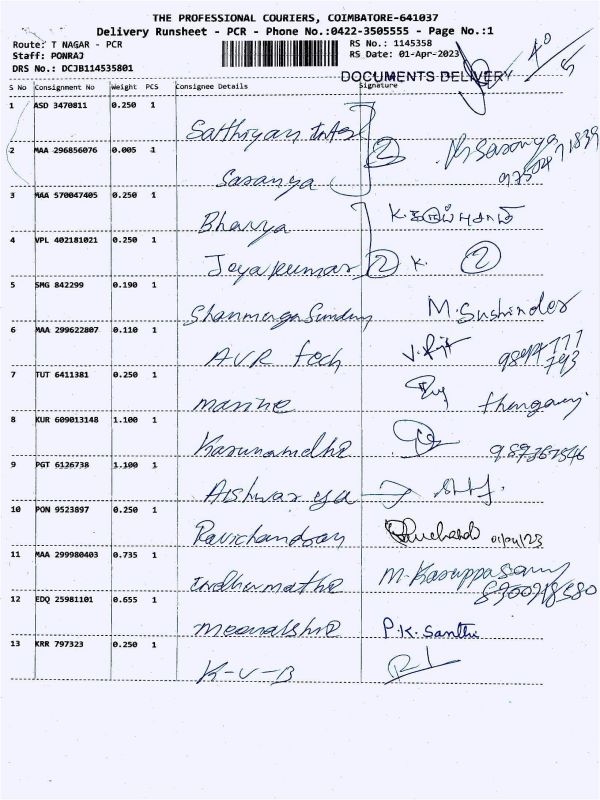 THE PROFESSIONAL COURIERS, COIMBATORE-641037
Delivery Runsheet - PCR - Phone No.:0422-3505555 - Page No.:1
Route: T NAGAR - PCR RS No.: 1145358
Staff: PONRAJ RS Date: 01-Apr-2023
DRS No.: DCJB114535801
DOCUMENTS DELIVERY
S No Consignment No Weight PCS Consignee Details Signature
1 ASD 3470811 0.250 1
2 MAA 296856076 0.005 1 Saranya
3 MAA 570047405 0.250 1 Bhavya
4 VPL 402181021 0.250 1 Jeyakumar 2 K. 2
5 SMG 842299 0.190 1 M. Sushinder
6 MAA 299622807 0.110 1 AVR Tech
7 TUT 6411381 0.250 1 marine
8 KUR 609013148 1.100 1 987367546
9 PGT 6126738 1.100 1 Aishwarya
10 PON 9523897 0.250 1 Ravichandran 01/04/23
11 MAA 299980403 0.735 1 M. Karuppasamy
12 EDQ 25981101 0.655 1 P.K. Santhi
13 KRR 797323 0.250 1 K-V-B